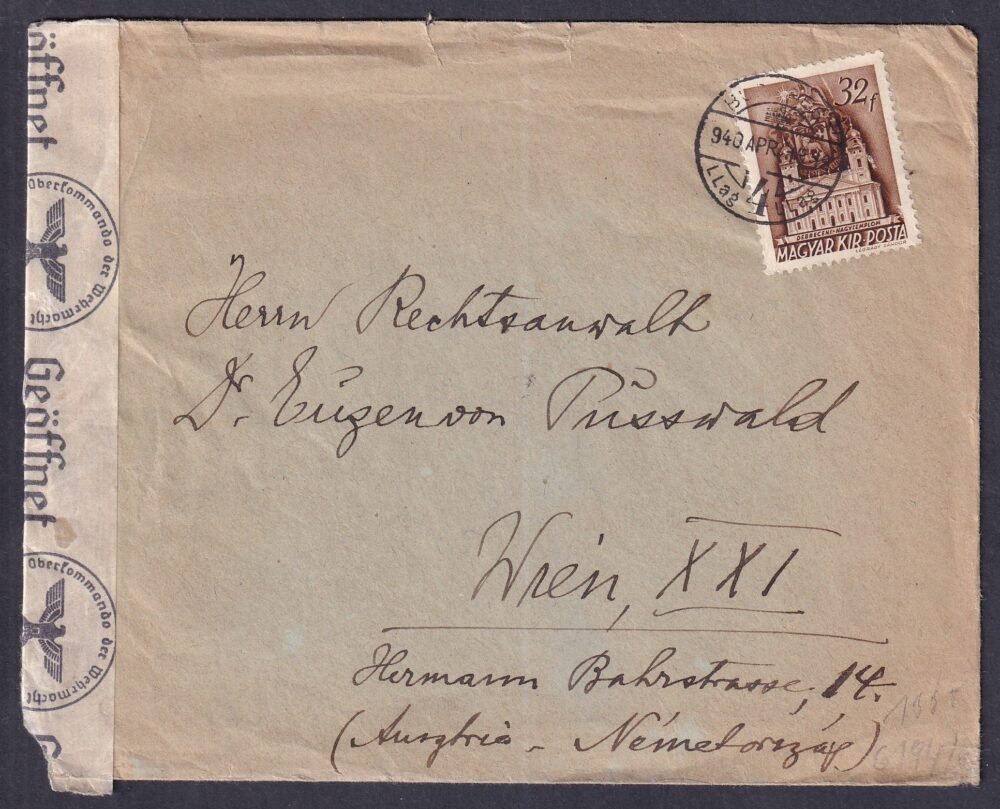 öffnet
Oberkommando der Wehrmacht
Geöffnet
Oberkommando der Wehrmacht
G
32f
940 APR
4
DEBRECENI-NAGYTEMPLOM
MAGYAR KIR·POSTA
LÉGRÁDY SÁNDOR
Herrn Rechtsanwalt
Dr. Eugen von Pusswald
Wien, XXI
Hermann Bahrstrasse, 14.
(Ausztria - Németország)